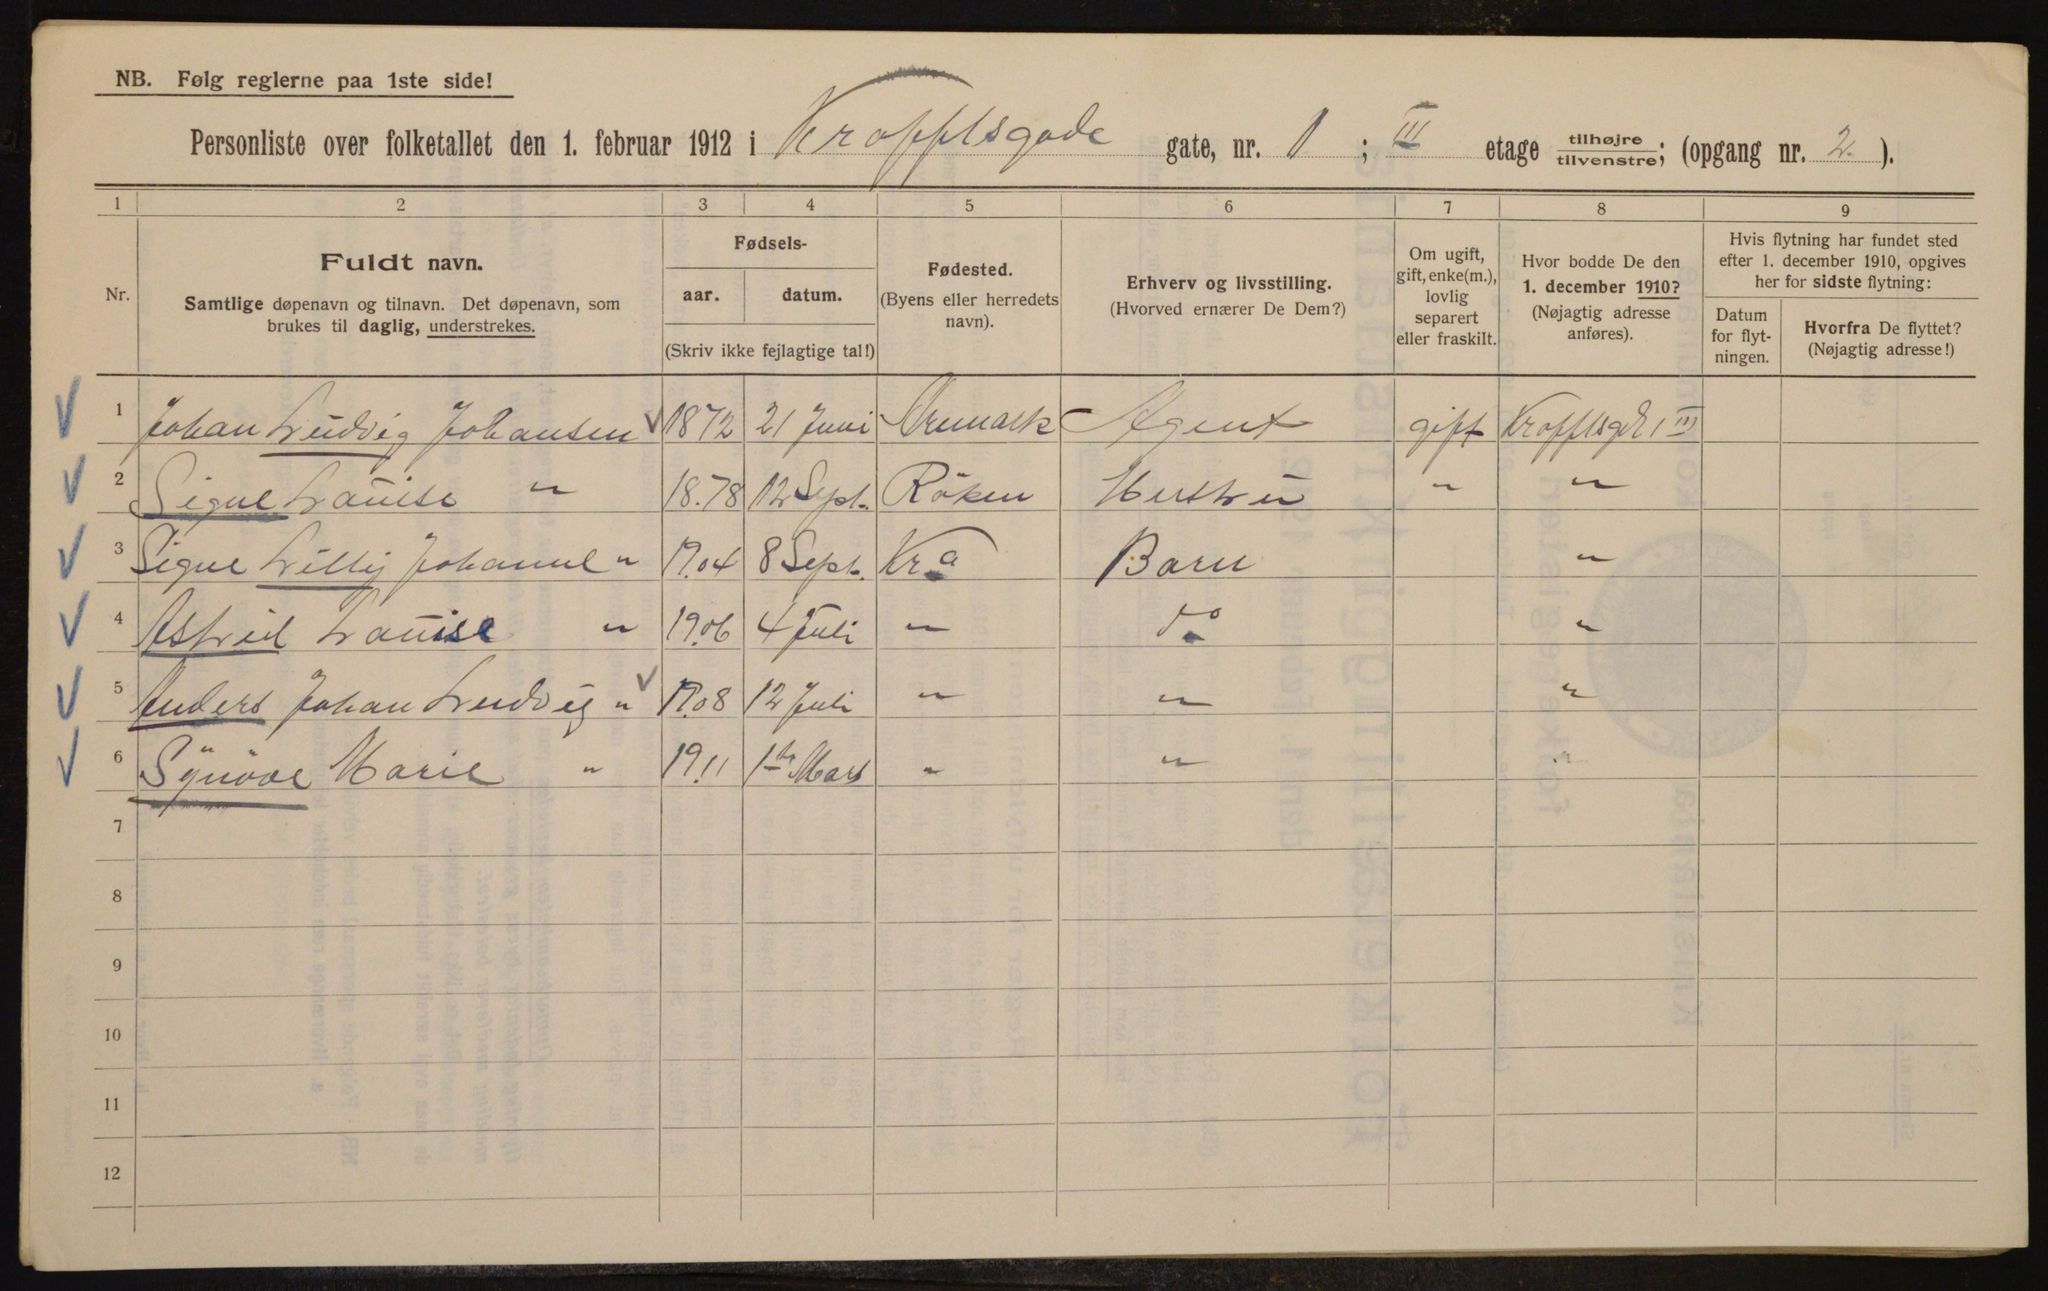 NB. Følg reglerne paa 1ste side!
Personliste over folketallet den 1. februar 1912 i Kropffsgade gate, nr. 1 ; III etage tilhøjre/tilvenstre; (opgang nr. 2. ).
1 2 3 4 5 6 7 8 9
Nr.
Fuldt navn.
Samtlige døpenavn og tilnavn. Det døpenavn, som
brukes til daglig, understrekes.
Fødsels-
aar. datum.
(Skriv ikke fejlagtige tal!)
Fødested.
(Byens eller herredets
navn).
Erhverv og livsstilling.
(Hvorved ernærer De Dem?)
Om ugift,
gift, enke(m.),
lovlig
separert
eller fraskilt.
Hvor bodde De den
1. december 1910?
(Nøjagtig adresse
anføres).
Hvis flytning har fundet sted
efter 1. december 1910, opgives
her for sidste flytning:
Datum
for flyt-
ningen.
Hvorfra De flyttet?
(Nøjagtig adresse!)
1 Johan Ludvig Johansen 1872 21 Juni Aremark Agent gift Kropffsgd. 1 III
2 Signe Lauise " 18.78 12 Sept. Röken Hustru " "
3 Signe Lilly Johanne " 19.04 8 Sept. Kra Barn "
4 Astrid Lauise " 19.06 4 Juli " do "
5 Anders Johan Ludvig " 19.08 12 Juli " " "
6 Synöve Marie " 19.11 1ste Mars " " "
7
8
9
10
11
12